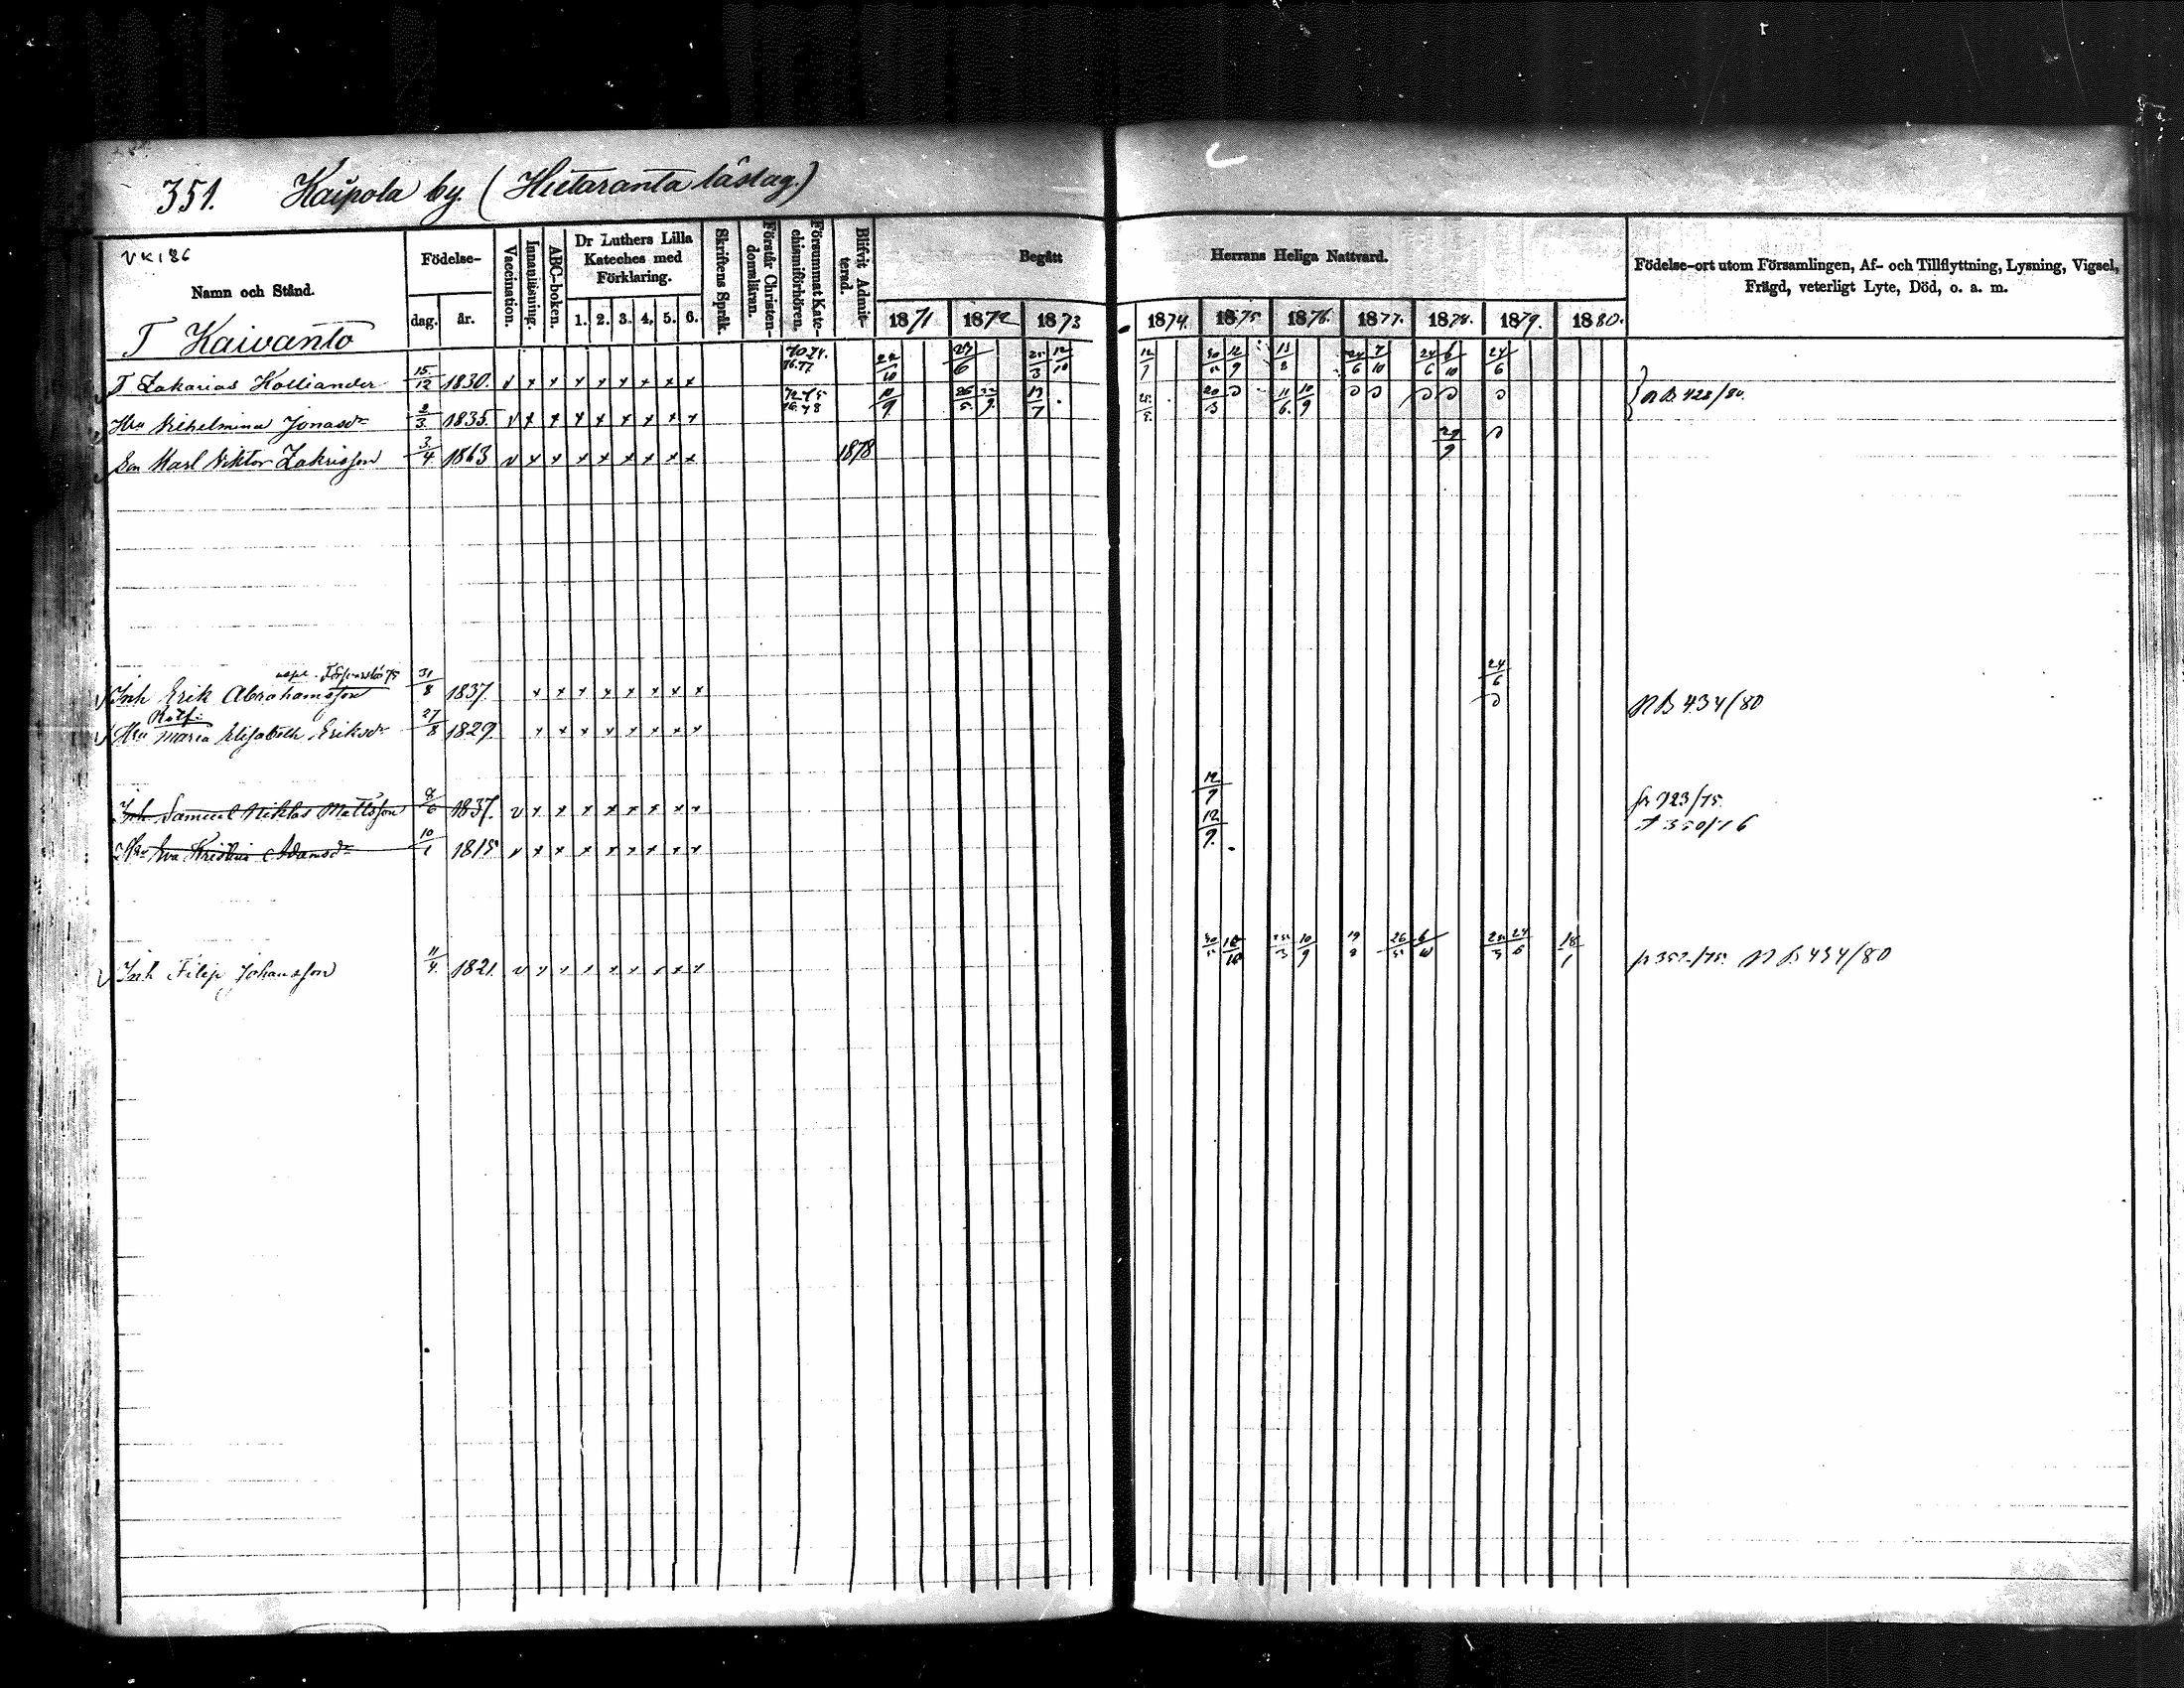 351. Kaipola by. (Hietaranta läslag.)
VK 186
Namn och Stånd.
Födelse-
dag. år.
Vaccination.
Innanläsning.
ABC-boken.
Dr Luthers Lilla Kateches med Förklaring.
1. 2. 3. 4. 5. 6.
Skriftens Språk.
Förstår Christendomsläran.
Försummat Katechismiförhören.
Blifvit Admitterad.
Begått Herrans Heliga Nattvard.
1871 1872 1873 1874. 1875 1876. 1877. 1878. 1879. 1880.
Födelse-ort utom Församlingen, Af- och Tillflyttning, Lysning, Vigsel,
Frägd, veterligt Lyte, Död, o. a. m.
T Kaivanto
T. Zakarias Kolliander 15/12 1830. v x x x x x x x x 70.74. 76.77. 22/10 23/6 25/3 12/10 12/7 30/5 12/9 13/8 24/6 7/10 24/6 6/10 24/6
Hu Vilhelmina Jonasdr 2/3 1835. v x x x x x x x x 10/9 26/5 22/9 13/7 11/6 10/9 NB 428/80.
Son Karl Viktor Zakrisson 3/4 1863 v x x x x x x x x 1878 29/9
Inh Erik Abrahamsson 31/8 1837. x x x x x x x x 24/6
Hu Maria Elisabeth Eriksdr 27/8 1829. x x x x x x x x NB 434/80
Inh Samuel Niklas Mattsson 8/6 1837. v x x x x x x x x 12/9 fr 923/75.
Hu Eva Kristina Adamsdr 10/1 1815 v x x x x x x x x 12/9. t 350/76
Inh Filip Johansson 11/4 1821. v x x x x x x x x 30/5 10/10 25/3 10/9 19/8 26/5 6/10 25/3 24/6 18/1 fr 352/75. NB 434/80